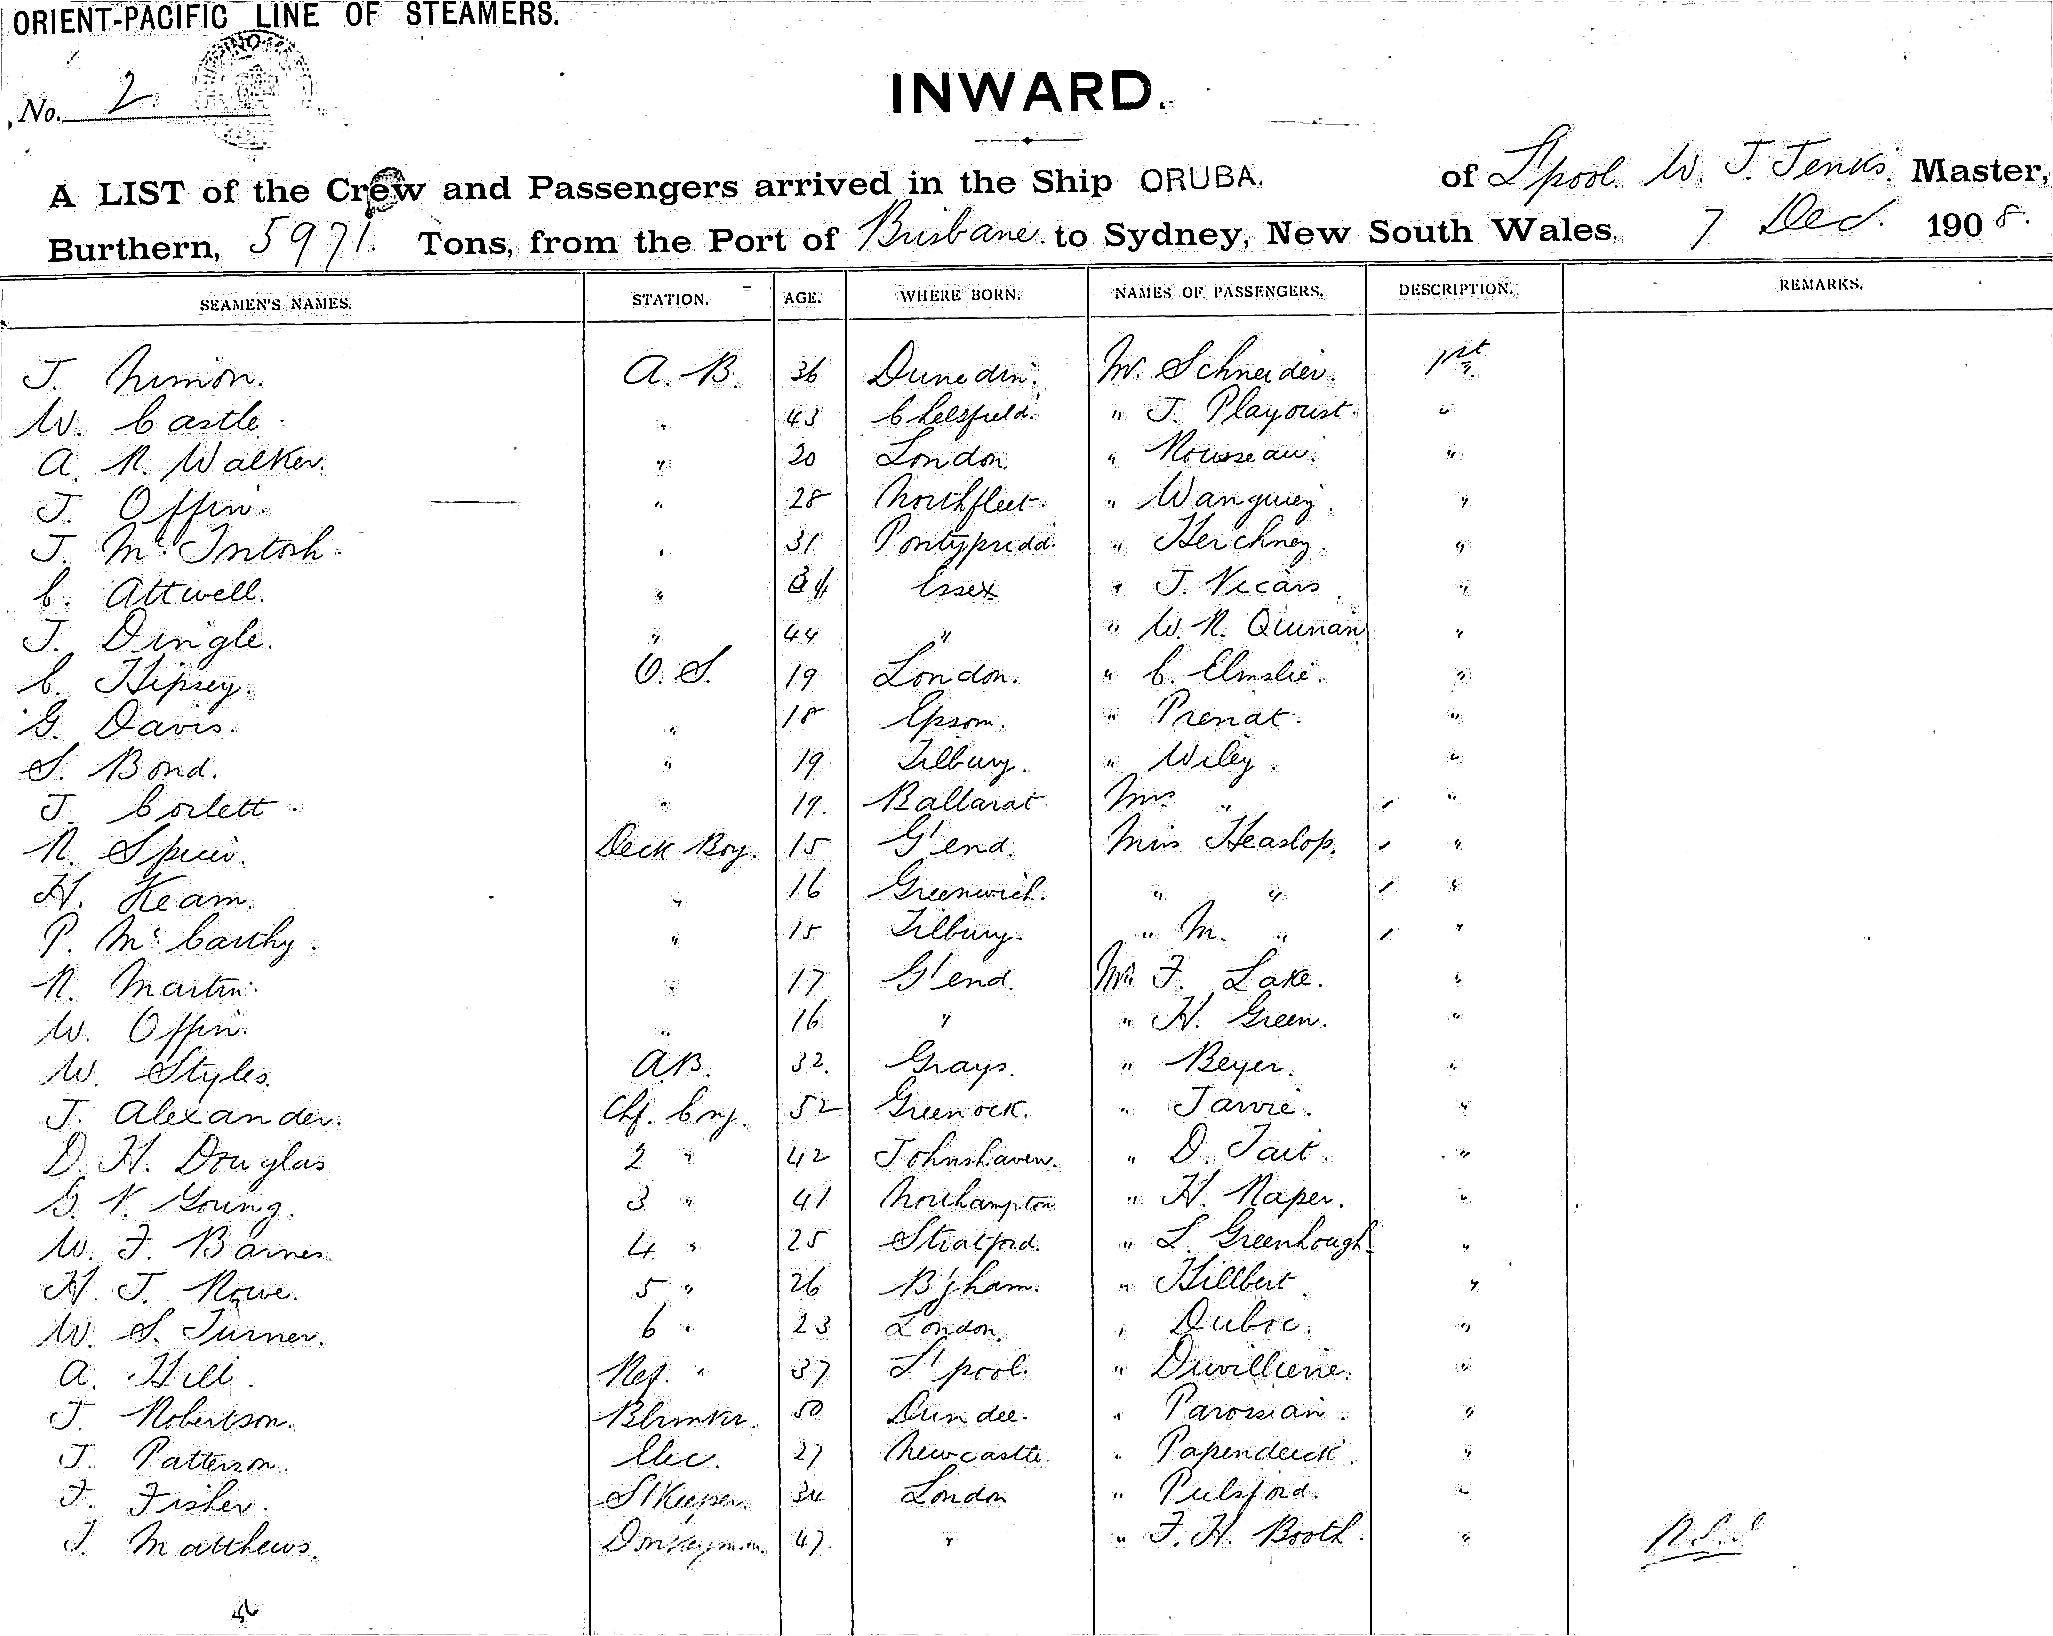 ORIENT-PACIFIC LINE OF STEAMERS.
No. 2
INWARD.
A LIST of the Crew and Passengers arrived in the Ship ORUBA. of L'pool. W. J. Jenks. Master,
Burthern, 5971. Tons, from the Port of Brisbane to Sydney, New South Wales, 7 Dec. 1908.
SEAMEN'S NAMES. STATION. AGE. WHERE BORN. NAMES OF PASSENGERS. DESCRIPTION. REMARKS.
J. Nimon. A. B. 36 Dunedin. Mr. Schneider. 1st
W. Castle. " 43 Chelsfield. " J. Playoust. "
A. R. Walker. " 20 London. " Rousseau. "
J. Offin. " 28 Northfleet. " "
J. McIntosh. " 31 Pontypridd. " "
C. Attwell. " 34 Essex " J. Vicars "
J. Dingle. " 44 " " W. R. Quinan "
C. Hipsey. O. S. 19 London. " C. Elmslie. "
G. Davis. " 18 Epsom. " Prenat. "
S. Bond. " 19 Tilbury. " Wiley. "
J. Corlett. " 19. Ballarat Mrs " "
R. Spicer. Deck Boy. 15 G'end. Miss Heaslop. "
H. Keam. " 16 Greenwich. " " "
P. McCarthy. " 15 Tilbury. " M. " "
R. Martin. " 17 G'end. Mr. F. Lake. "
W. Offin. " 16 " " H. Green. "
W. Styles. A.B. 32. Grays. " Beyer. "
J. Alexander. Chf. Eng. 52 Greenock. " "
D. H. Douglas 2 " 42 Johnshaven. " D. Tait. "
G. V. Young. 3 " 41 Northampton " H. Raper. "
W. F. Barnes 4 " 25 Stratford. " L. Greenhough "
H. J. Rowe. 5 " 26 B'ham. " Hillbert. "
W. S. Turner. 6 " 23 London. " Duboc. "
A. Hill. Ref. " 37 L'pool. " "
J. Robertson. 50 Dundee. " Parossian. "
J. Patterson. Elec. 27 Newcastle. " "
F. Fisher. St Keeper. 34 London " Pulsford. "
J. Matthews. Donkeyman. 47. " " F. H. Booth. "